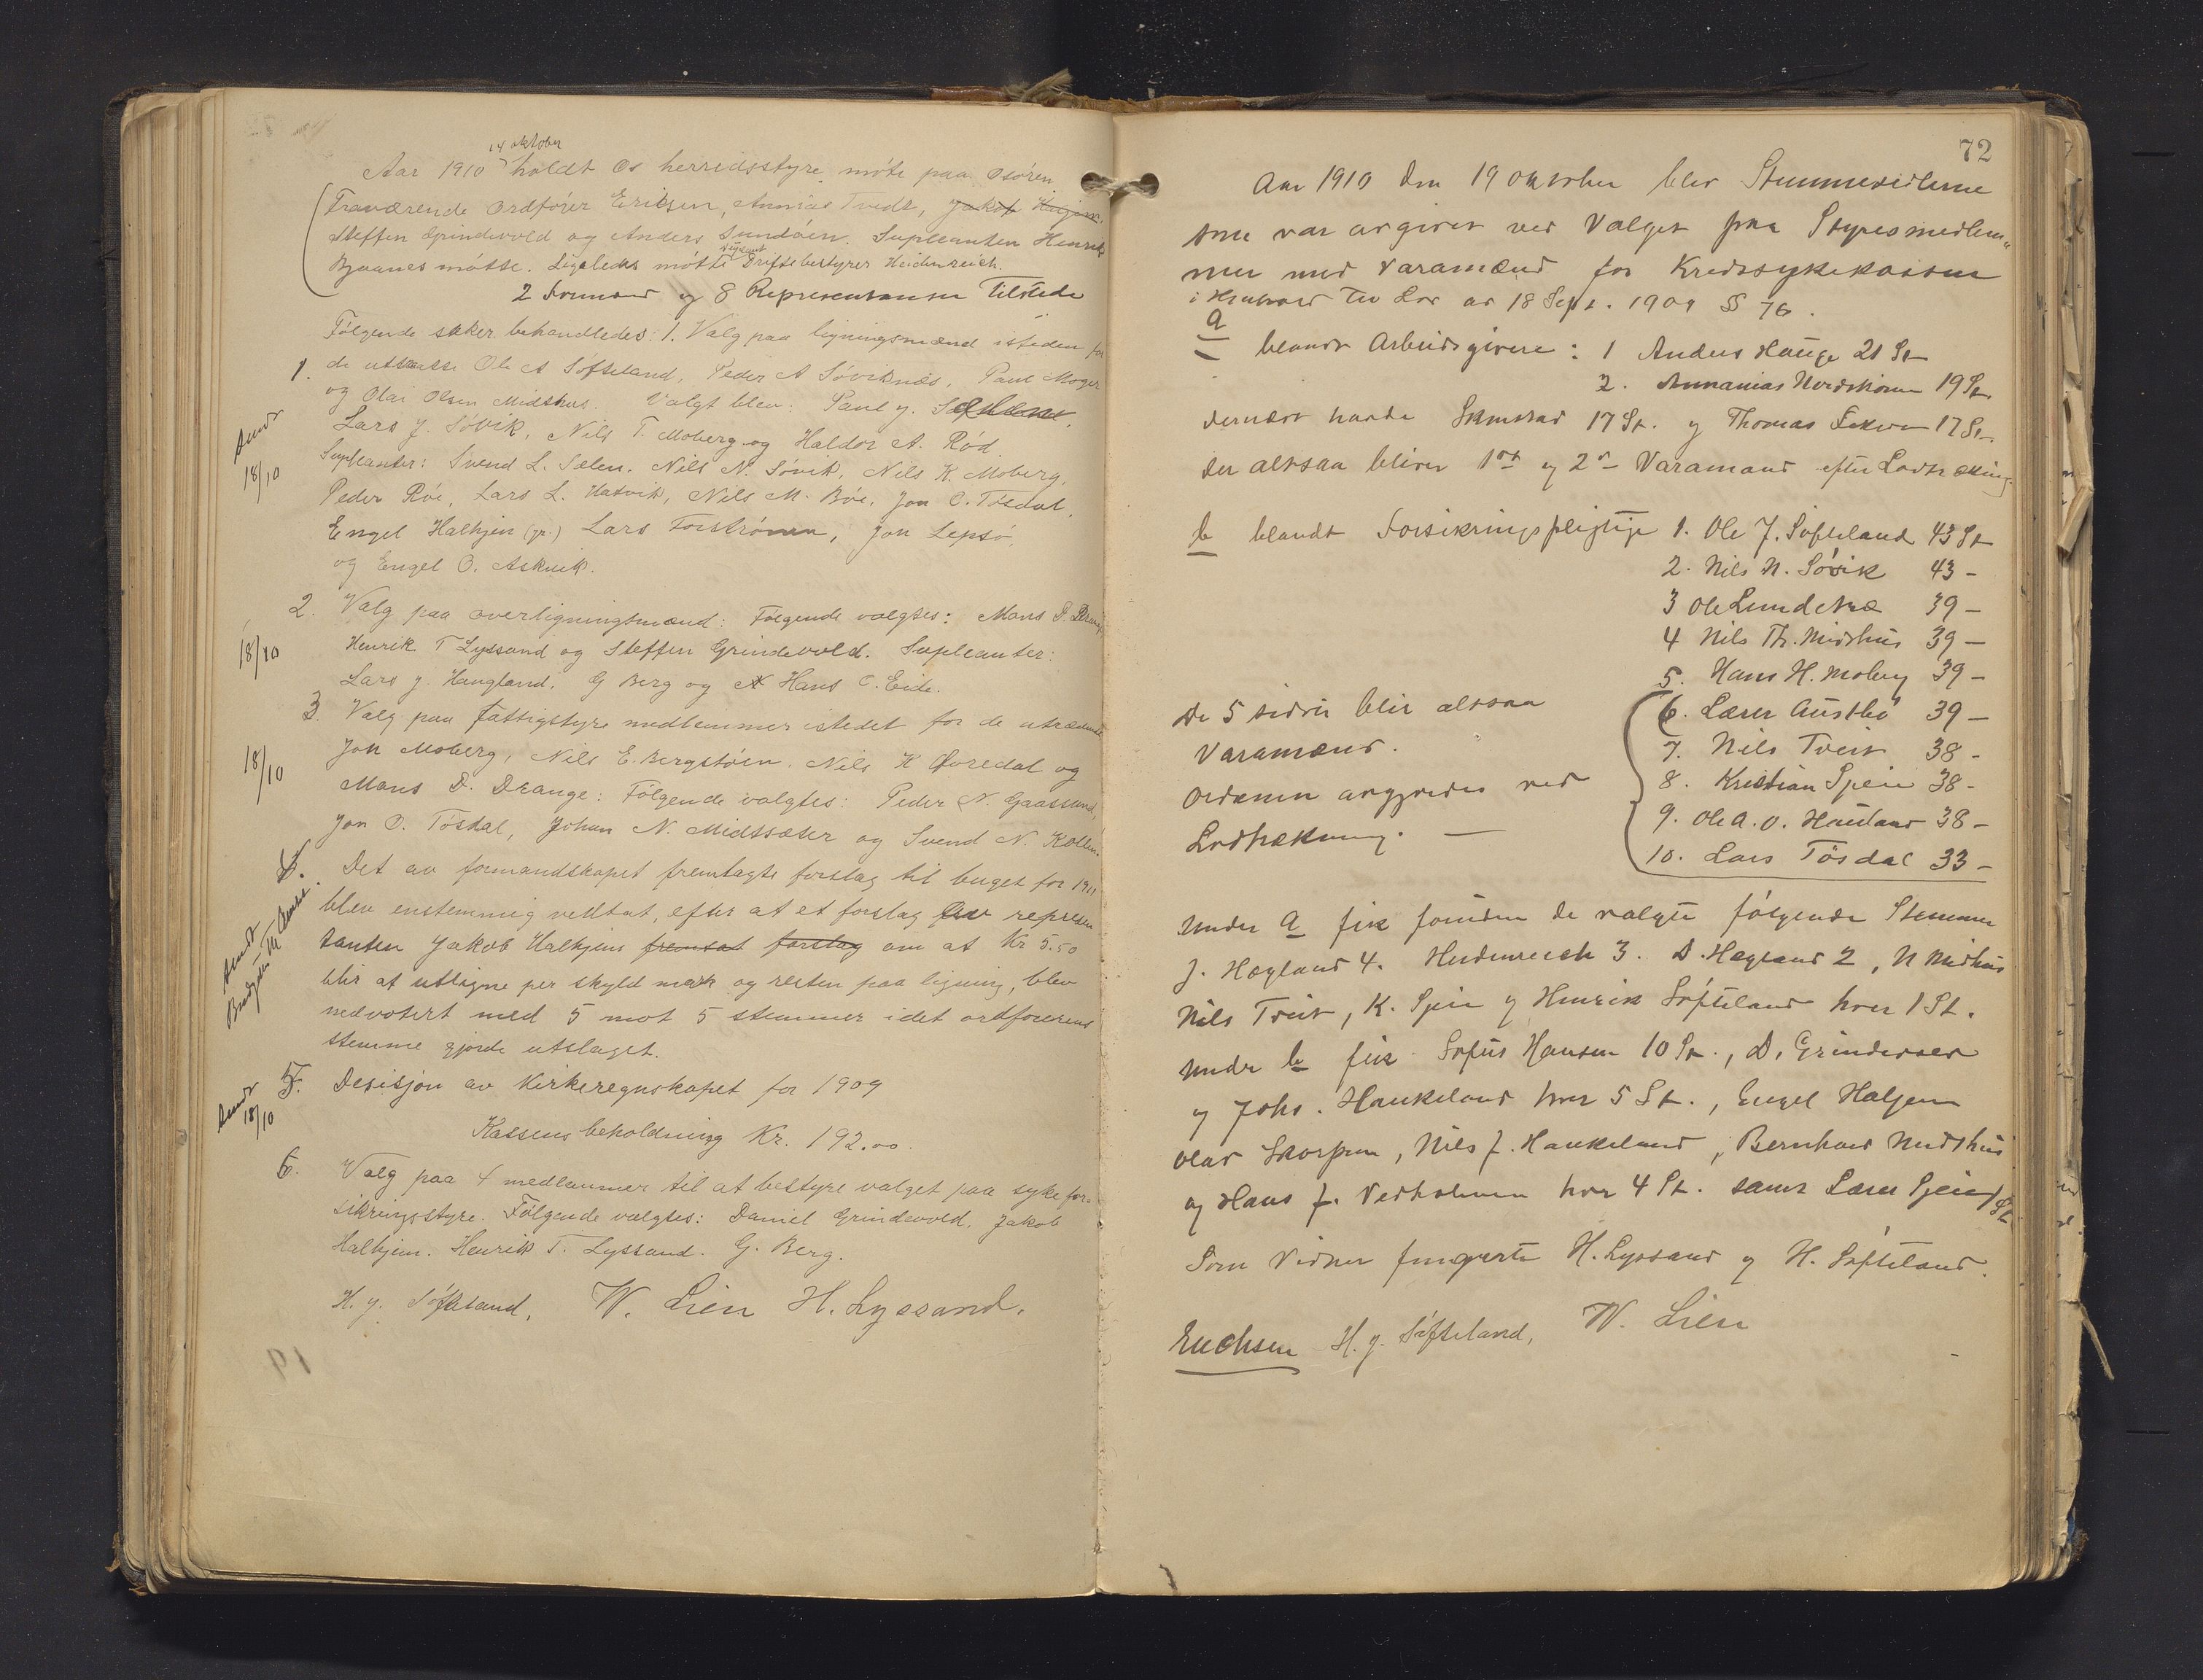 14 oktober
Aar 1910 holdt Os herredsstyre møte paa Osøren.
Fraværende Ordfører Ericsen, Annias Tvedt, Jakob Haljem.
Steffen Grindevold og Anders Sundøen. Supleanten Henrik
Bjaanes møtte. Ligeledes møtte Driftsbestyrer Heidenreich.
2 Formænd og 8 Representanter tilstede
Følgende saker behandledes: 1. Valg paa ligningsmænd isteden for
1. de uttraatte Ole A Søfteland, Peder A Søviknæs, Paul Moger
og Olai Olsen Midthus. Valgt blev: Paul J.
Sendt 18/10
Lars J. Søvik, Nils T. Moberg og Haldor A. Rød.
Supleanter: Svend L. Sælen. Nils N. Søvik, Nils K. Moberg,
Peder Røe, Lars L. Hatvik, Nils M. Bøe, Jon O. Tøsdal,
Engel Halhjem (gr.) Lars Forstrønen, Jon Lepsø,
og Engel O. Askvik.
2. Valg paa overligningsmænd: Følgende valgtes: Mons D. Drange
18/10
Henrik T Lyssand og Steffen Grindevold. Supleanter:
Lars J. Haugland. G Berg og Hans O. Eide.
3. Valg paa Fattigstyre medlemmer istedet for de utrædende
18/10
Jon Moberg, Nils E. Bergstøen. Nils H Øvredal og
Mons D. Drange: Følgende valgtes: Peder N. Gaassand,
Jon O. Tøsdal, Johan N. Midtsæter og Svend N. Kolle
4. Det av formandskapet fremlagte forslag til buget for 1911
blev enstemmig vedtat, efter at et forslag fra represen
tanten Jakob Halhjem fremsat forslag om at Kr 5.50
blir at utligne per skyld mark og resten paa ligning, blev
nedvotert med 5 mot 5 stemmer idet ordførerens
stemme gjorde utslaget.
5. Desisjon av Kirkeregnskapet for 1909
Sendt 18/10
Kassens beholdning Kr. 192.00.
6. Valg paa 4 medlemmer til at bestyre valget paa sykefor-
sikringsstyre. Følgende valgtes: Daniel Grindevold, Jakob
Halhjem. Henrik T. Lyssand. G. Berg.
H. J. Søfteland, W. Lien H. Lyssand.
72
Aar 1910 den 19 oktober blev Stemmesedlerne
som var avgivet ved Valget paa Styresmedlem-
mer med Varamænd for Kredssykekassen
i Henhold til Lov av 18 Sept. 1909 § 76.
a blandt Arbeidsgivere: 1 Anders Hauge 21 St
2. Annanias Nordstrøm 19 St.
dernæst havde Skorstad 17 St. og Thomas 17 St.
der altsaa bliver 1ste og 2den Varamand efter Lodtrækning
b blandt Forsikringspligtige 1. Ole J. Søfteland 43 St
2. Nils N. Søvik 43 -
3 Ole Lundetræ 39 -
4 Nils Th. Midthus 39 -
5. Hans H. Moberg 39 -
De 5 sidste blir altsaa
Varamænd.
Ordenen avgjordes ved
Lodtrækning. —
6. Lærer Austbø 39 -
7. Nils Tveit 38 -
8. Kristian Speie 38 -
9. Ole A. O. Hauland 38 -
10. Lars Tøsdal 33 -
Under a fik foruden de valgte følgende Stemmer
J. Hægland 4. Heidenreich 3. D. Hægland 2, N Midthus
Nils Tveit, K. Speie og Henrik Søfteland hver 1 St.
Under b fik Sofus Hansen 10 St., D. Grindevold
og Johs. Haukeland hver 5 St., Engel Haljem
Olav Skorpen, Nils J. Haukeland, Bernhard Midthus
og Hans J. Vedholmen hver 4 St. samt Lærer Speie 1 St
Som Vidner fungerte H. Lyssand og H. Søfteland.
Erichsen H. J. Søfteland, W. Lien